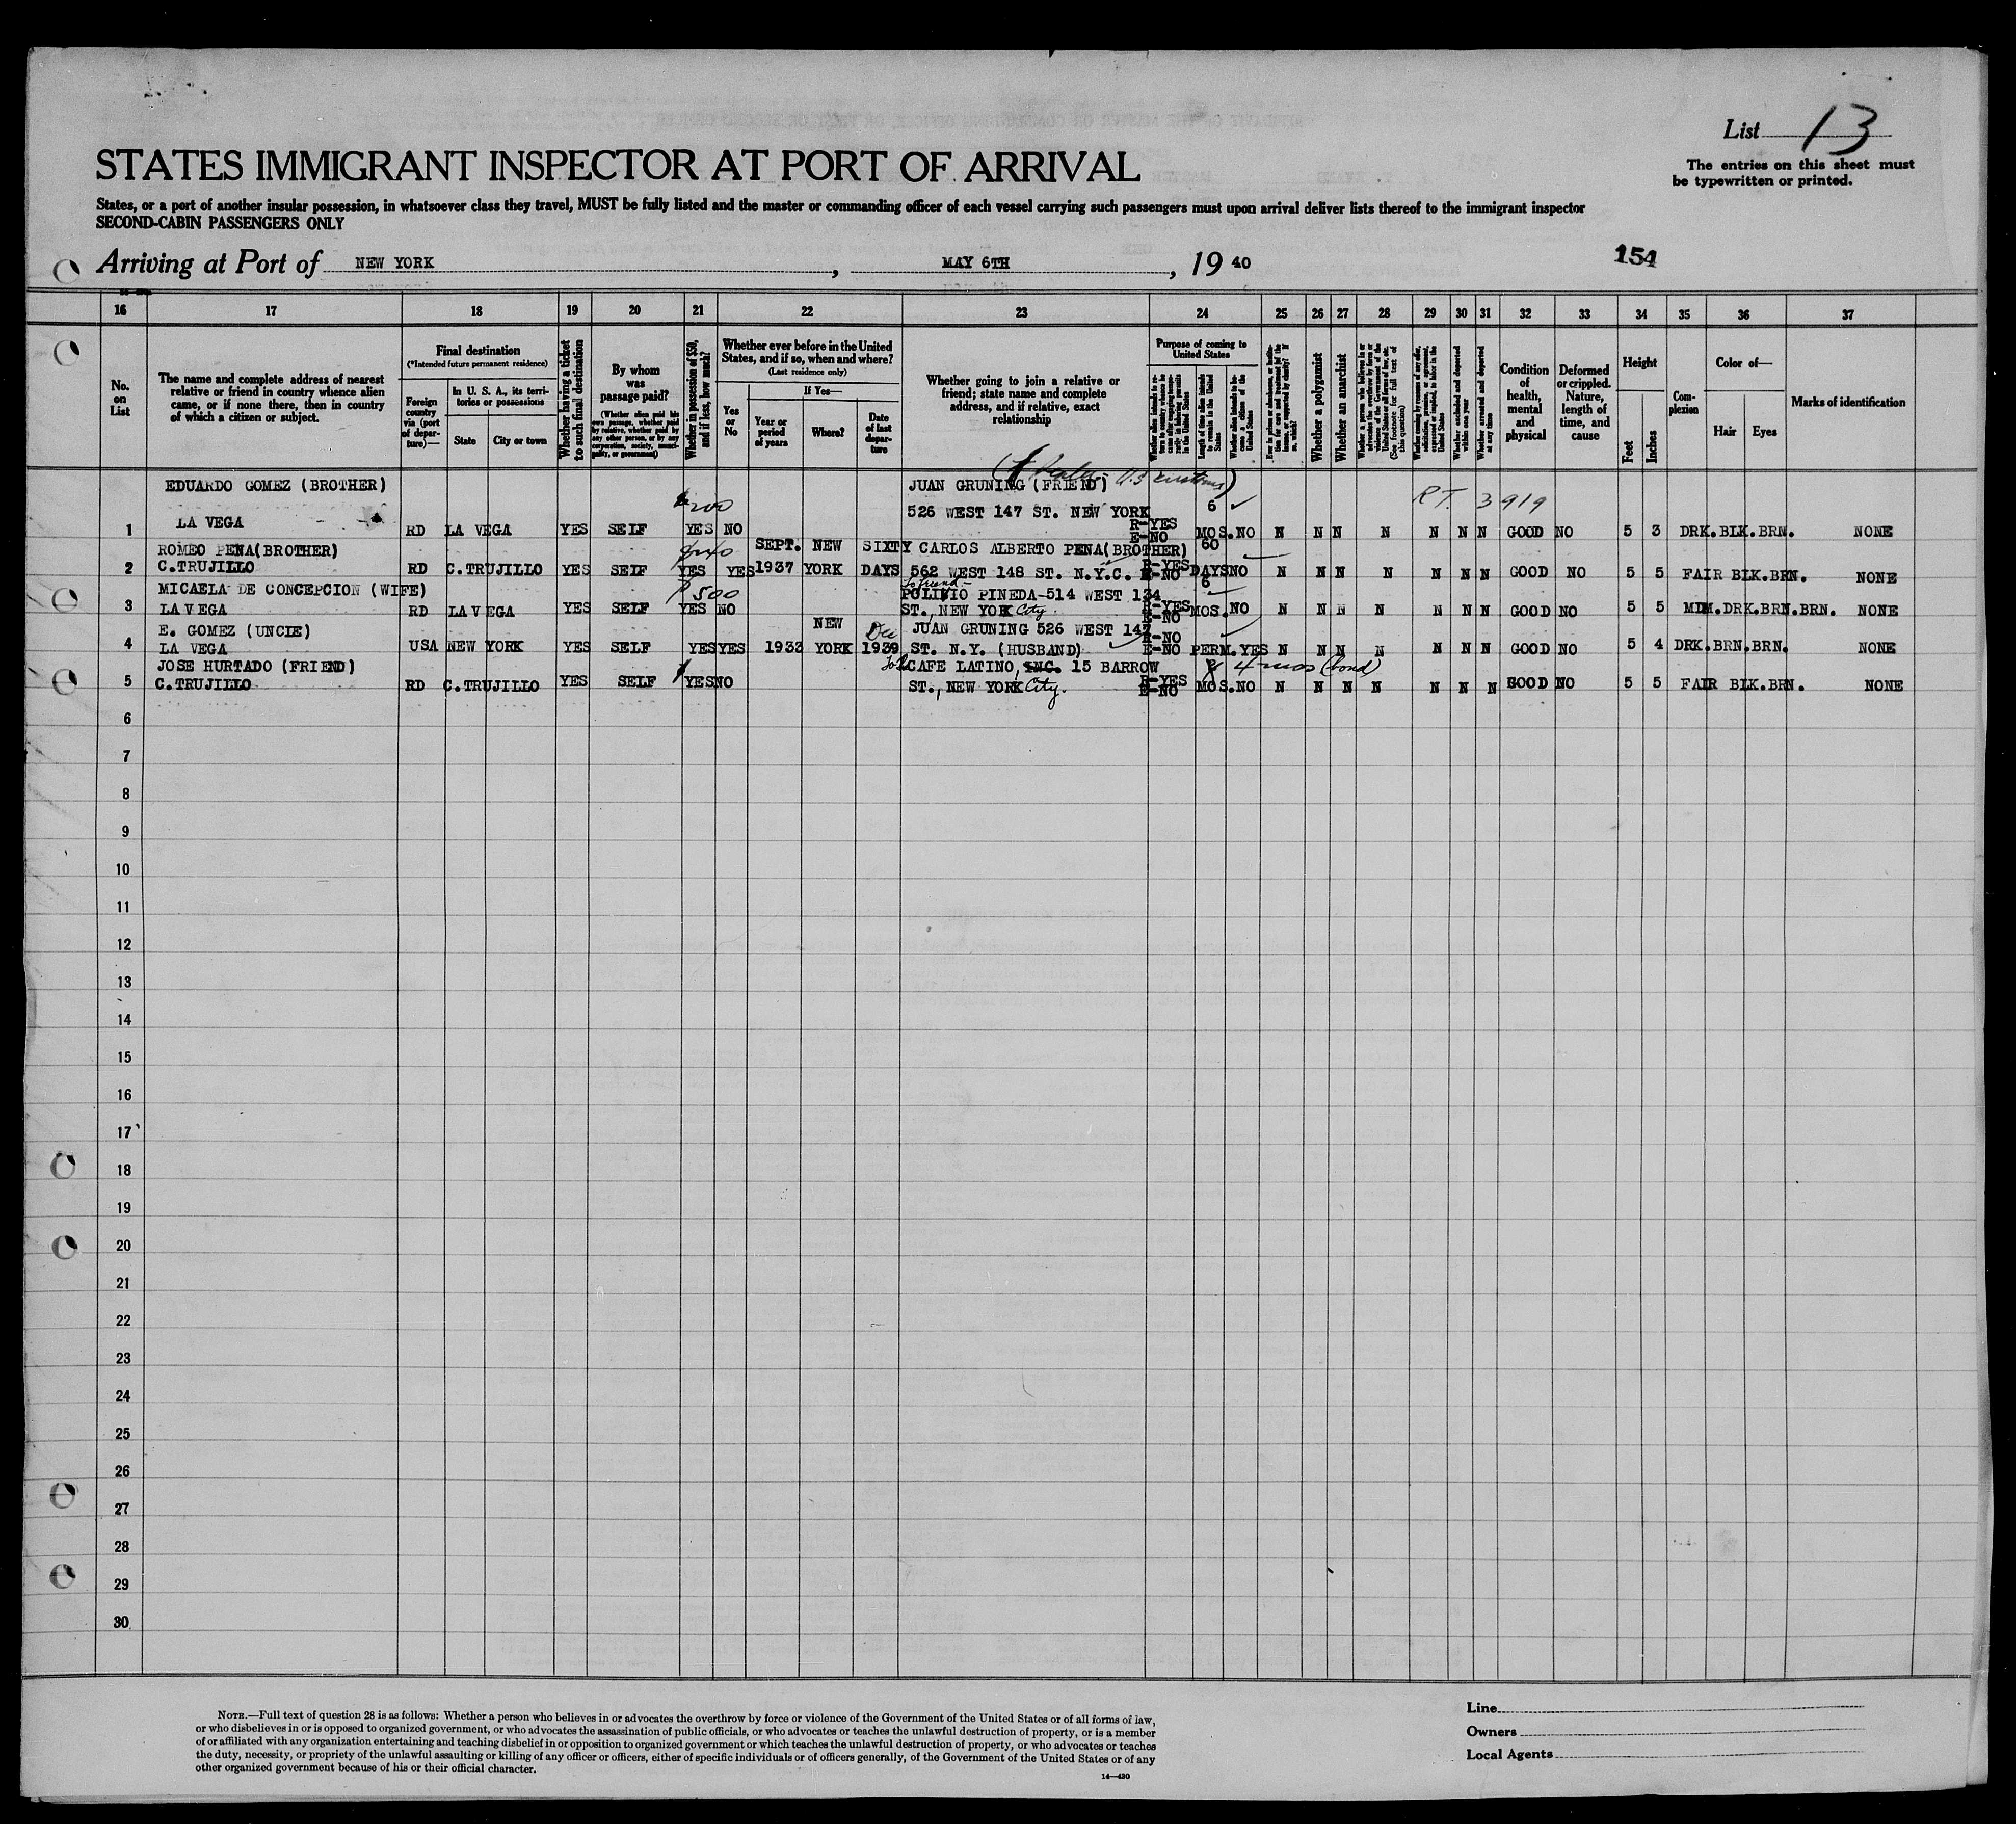 List 13
The entries on this sheet must
be typewritten or printed.
STATES IMMIGRANT INSPECTOR AT PORT OF ARRIVAL
States, or a port of another insular possession, in whatsoever class they travel, MUST be fully listed and the master or commanding officer of each vessel carrying such passengers must upon arrival deliver lists thereof to the immigrant inspector
SECOND-CABIN PASSENGERS ONLY
Arriving at Port of NEW YORK, MAY 6TH, 19 40
154
16 17 18 19 20 21 22 23 24 25 26 27 28 29 30 31 32 33 34 35 36 37
No. on List
The name and complete address of nearest
relative or friend in country whence alien
came, or if none there, then in country
of which a citizen or subject.
Final destination
(*Intended future permanent residence)
Foreign country via (port of departure)—
In U. S. A., its territories or possessions
State
City or town
Whether having a ticket to such final destination
By whom was passage paid?
(Whether alien paid his own passage, whether paid by relative, whether paid by any other person, or by any corporation, society, municipality, or government)
Whether in possession of $50, and if less, how much?
Whether ever before in the United
States, and if so, when and where?
(Last residence only)
Yes or No
If Yes—
Year or period of years
Where?
Date of last departure
Whether going to join a relative or
friend; state name and complete
address, and if relative, exact
relationship
Purpose of coming to United States
Length of time alien intends to remain in the United States
Whether alien intends to become a citizen of the United States
Whether a polygamist
Whether an anarchist
Whether arrested and deported at any time
Condition of health, mental and physical
Deformed or crippled. Nature, length of time, and cause
Height
Feet
Inches
Complexion
Color of—
Hair
Eyes
Marks of identification
EDUARDO GOMEZ (BROTHER) 200 JUAN GRUNING (FRIEND) U.S. customs RT. 3919
526 WEST 147 ST. NEW YORK 6
1 LA VEGA RD LA VEGA YES SELF YES NO R-YES E-NO MOS. NO N N N N N N N GOOD NO 5 3 DRK. BLK. BRN. NONE
ROMEO PENA(BROTHER) SEPT. NEW SIXTY CARLOS ALBERTO PENA(BROTHER) 60
2 C.TRUJILLO RD C.TRUJILLO YES SELF YES YES 1937 YORK DAYS 562 WEST 148 ST. N.Y.C. R-YES E-NO DAYS NO N N N N N N N GOOD NO 5 5 FAIR BLK. BRN. NONE
MICAELA DE CONCEPCION (WIFE) 500 To friend- PINEDA-514 WEST 134 6
3 LA VEGA RD LA VEGA YES SELF YES NO ST., NEW YORK City. R-YES E-NO MOS. NO N N N N N N N GOOD NO 5 5 MDM.DRK.BRN.BRN. NONE
E. GOMEZ (UNCLE) NEW Dec JUAN GRUNING 526 WEST 147
4 LA VEGA USA NEW YORK YES SELF YES YES 1933 YORK 1939 ST. N.Y. (HUSBAND) R-NO E-NO PERM. YES N N N N N N N GOOD NO 5 4 DRK.BRN.BRN. NONE
JOSE HURTADO (FRIEND) CAFE LATINO, INC. 15 BARROW 4 mos (bond)
5 C.TRUJILLO RD C.TRUJILLO YES SELF YES NO ST., NEW YORK City. R-YES E-NO MOS. NO N N N N N N N GOOD NO 5 5 FAIR BLK. BRN. NONE
6
7
8
9
10
11
12
13
14
15
16
17
18
19
20
21
22
23
24
25
26
27
28
29
30
NOTE.—Full text of question 28 is as follows: Whether a person who believes in or advocates the overthrow by force or violence of the Government of the United States or of all forms of law,
or who disbelieves in or is opposed to organized government, or who advocates the assassination of public officials, or who advocates or teaches the unlawful destruction of property, or is a member
of or affiliated with any organization entertaining and teaching disbelief in or opposition to organized government or which teaches the unlawful destruction of property, or who advocates or teaches
the duty, necessity, or propriety of the unlawful assaulting or killing of any officer or officers, either of specific individuals or of officers generally, of the Government of the United States or of any
other organized government because of his or their official character.
14—430
Line
Owners
Local Agents